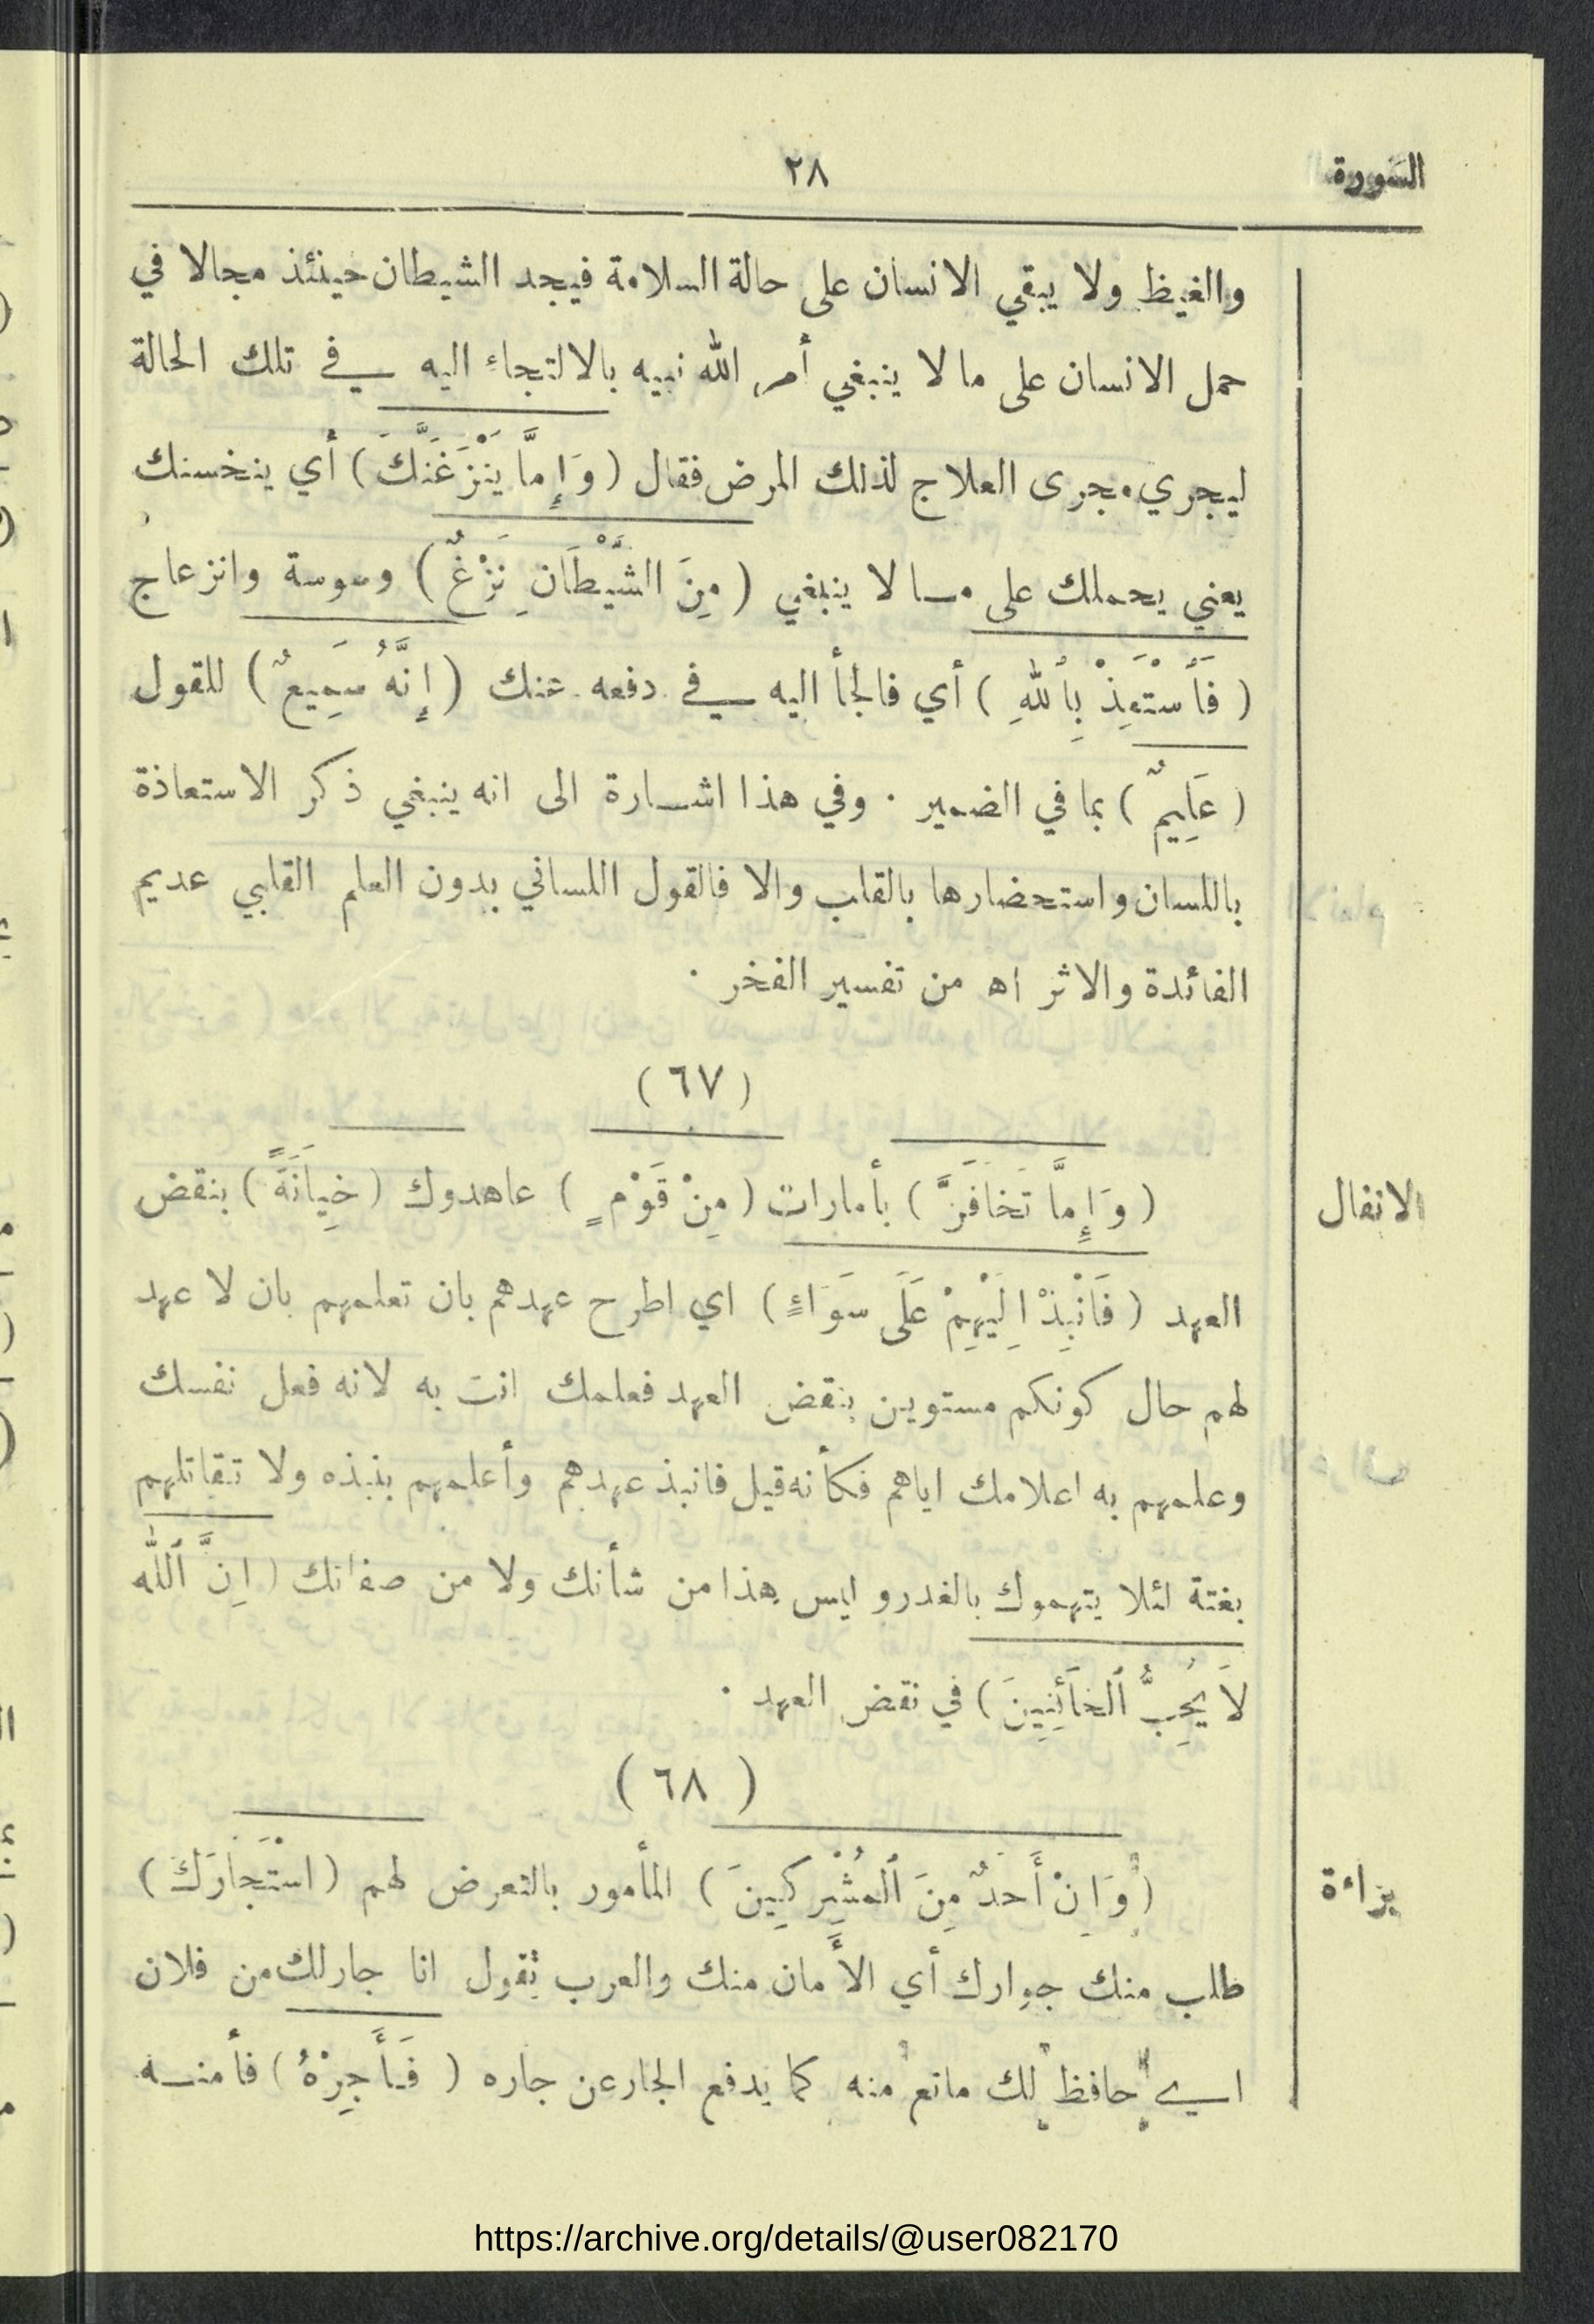 السورة
٢٨
والغيظ ولا يبقي الانسان على حالة السلامة فيجد الشيطان حينئذ مجالا في
حمل الانسان على ما لا ينبغي أمر الله نبيه بالالتجاء اليه في تلك الحالة
ليجري مجرى العلاج لذلك المرض فقال ( وَإِمَّا يَنْزَغَنَّكَ ) أي ينخسنك
يعني يحملك على مـا لا ينبغي ( مِنَ الشَّيْطَانِ نَزْغٌ ) وسوسة وانزعاج
( فَٱسْتَعِذْ بِٱللهِ ) أي فالجأ اليه في دفعه عنك ( إِنَّهُ سَمِيعٌ ) للقول
( عَلِيمٌ ) بما في الضمير ٠ وفي هذا اشـارة الى انه ينبغي ذكر الاستعاذة
باللسان واستحضارها بالقلب والا فالقول اللساني بدون العلم القلبي عديم
الفائدة والاثر اه من تفسير الفخر ٠
( ٦٧ )
الانفال
( وَإِمَّا تَخَافَنَّ ) بأمارات ( مِنْ قَوْمٍ ) عاهدوك ( خِيَانَةً ) بنقض
العهد ( فَانْبِذْ اِلَيْهِمْ عَلَى سَوَاءٍ ) اي اطرح عهدهم بان تعلمهم بان لا عهد
لهم حال كونكم مستوين بنقض العهد فعلمك انت به لانه فعل نفسك
وعلمهم به اعلامك اياهم فكأنه قيل فانبذ عهدهم وأعلمهم بنبذه ولا تقاتلهم
بغتة لئلا يتهموك بالغدر و ليس هذا من شأنك ولا من صفاتك ( اِنَّ ٱللّٰه
لَا يُحِبُّ ٱلْخَآئِنِينَ ) في نقض العهد ٠
( ٦٨ )
براءة
( وَاِنْ أَحَدٌ مِنَ ٱلْمُشْرِكِينَ ) المأمور بالتعرض لهم ( اسْتَجَارَكَ )
طلب منك جوارك أي الأَمان منك والعرب تقول انا جار لك من فلان
اي حافظ لك مانع منه كما يدفع الجار عن جاره ( فَأَجِرْهُ ) فأمنـه
https://archive.org/details/@user082170